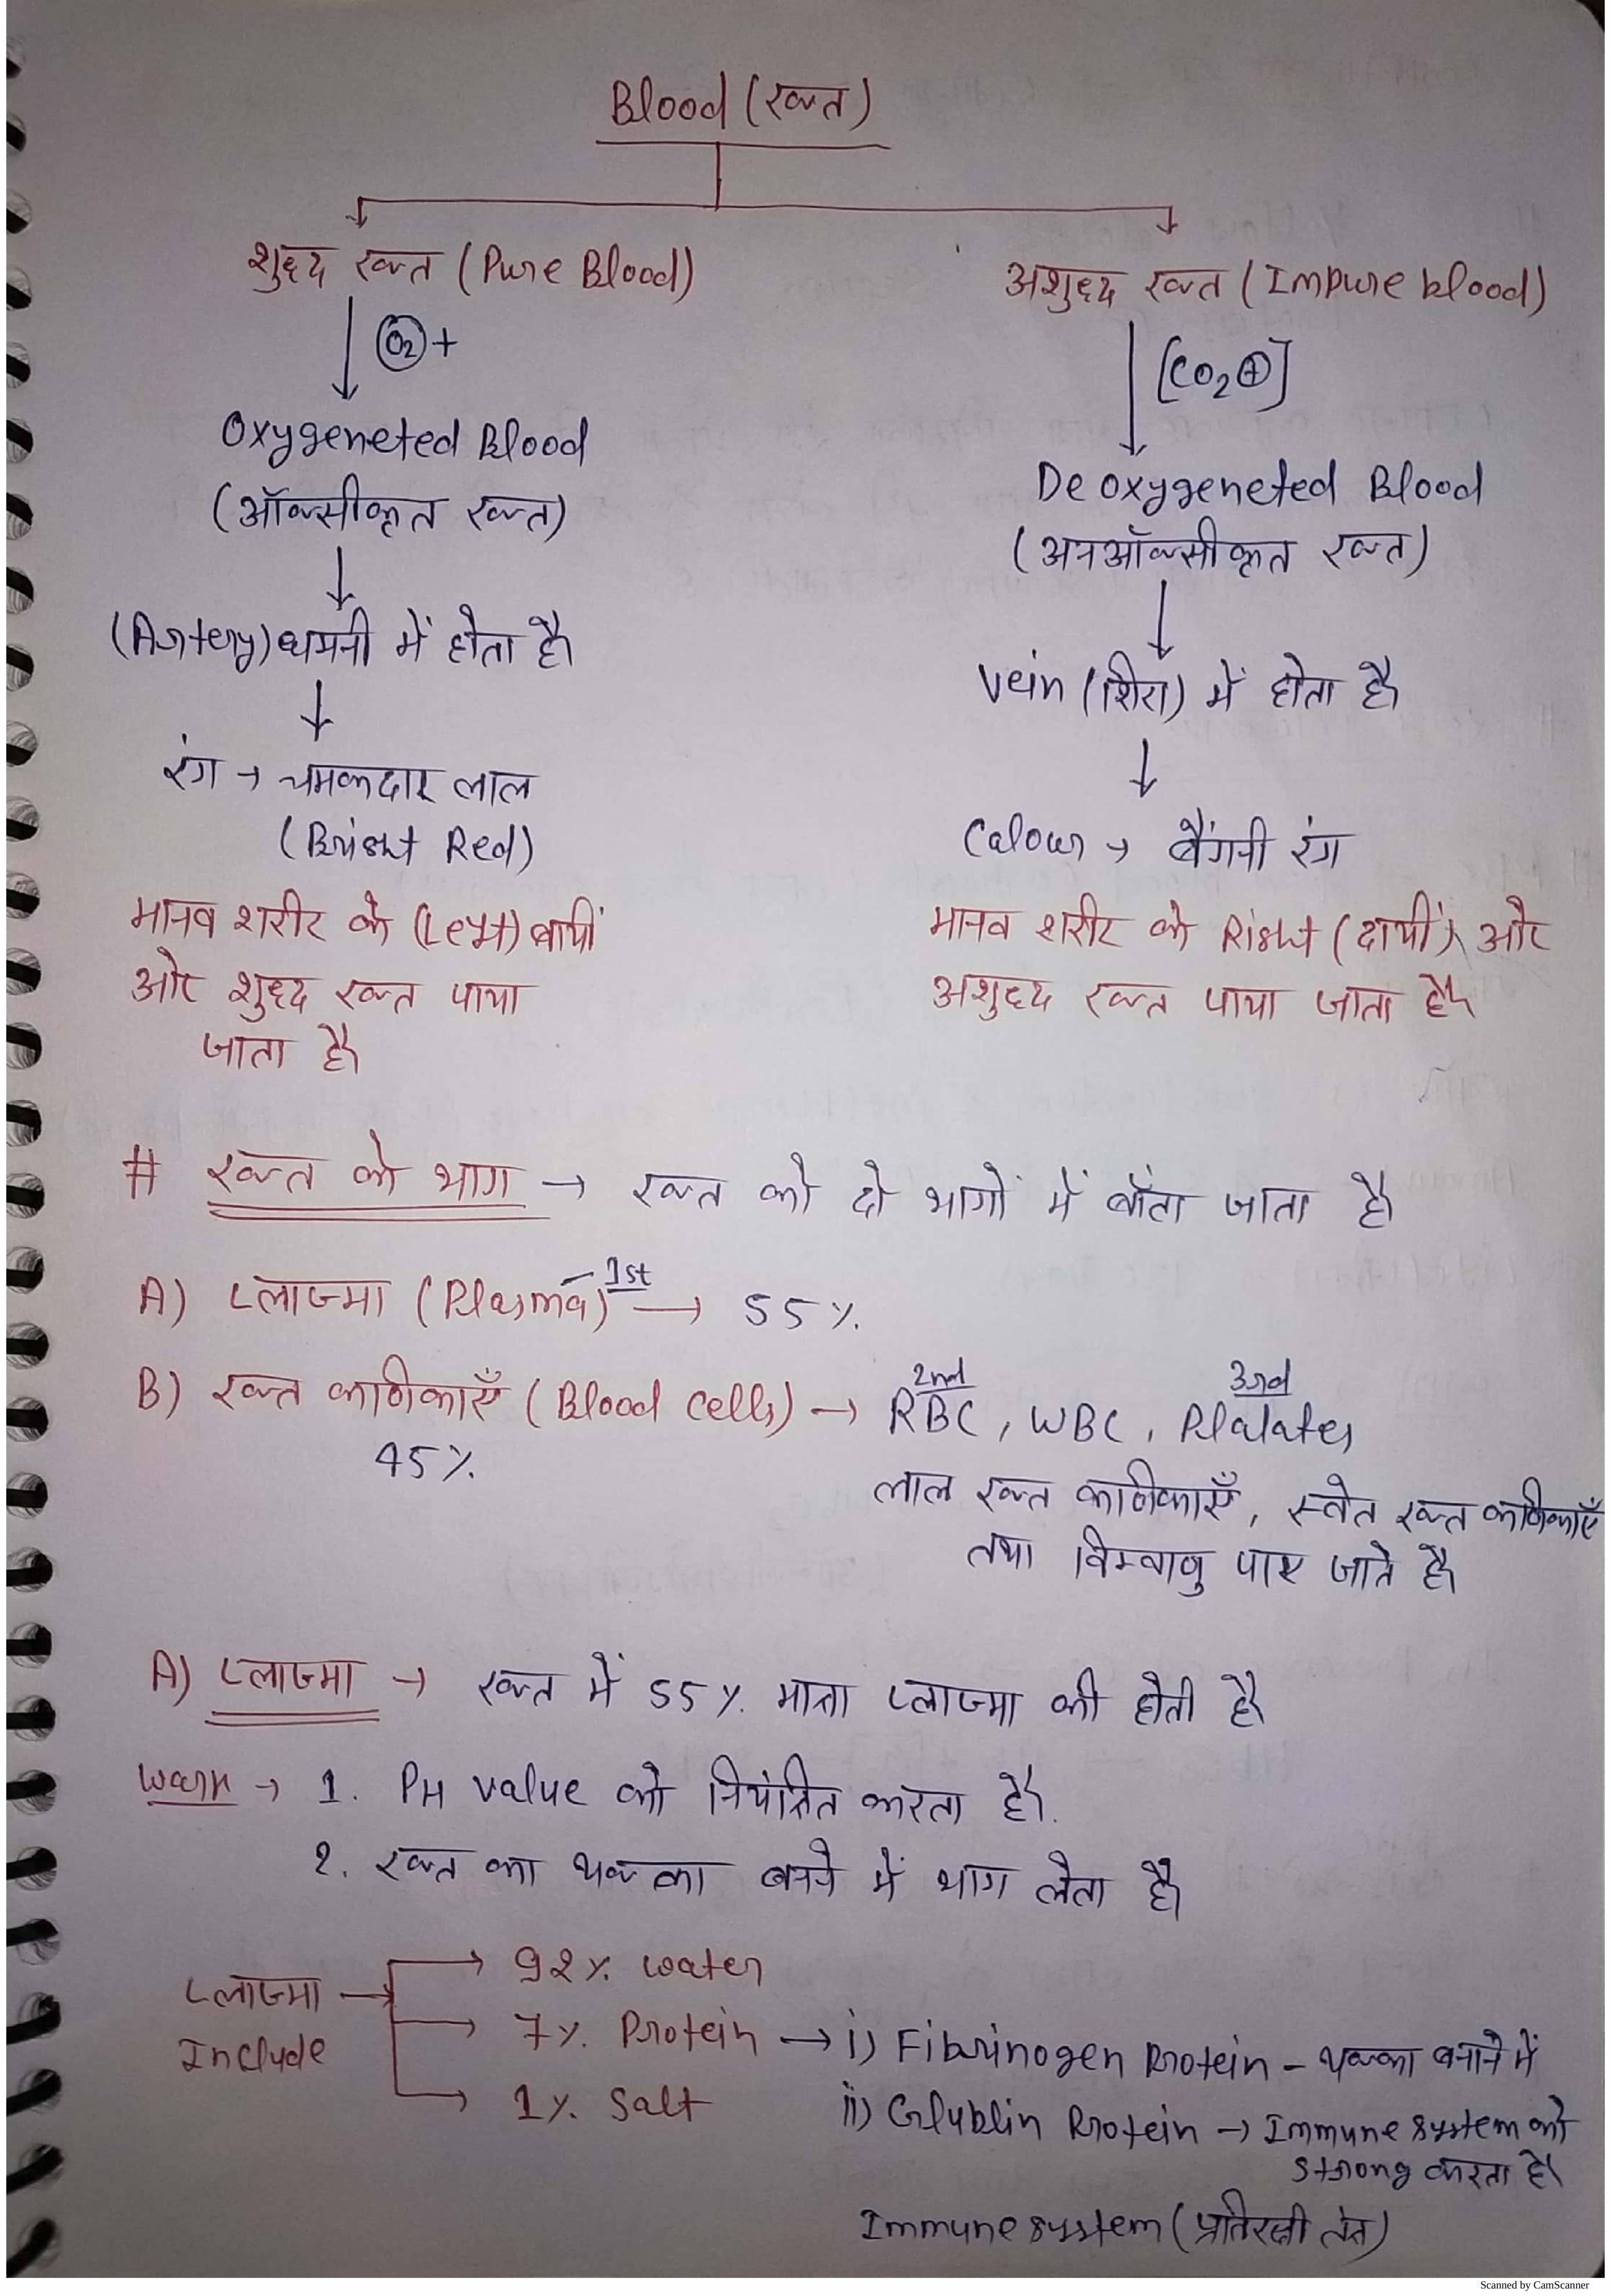 Blood (रक्त)
शुद्ध रक्त (Pure Blood)
O2 +
Oxygeneted Blood
(ऑक्सीकृत रक्त)
(Artery) धमनी में होता है।
रंग → चमकदार लाल
(Bright Red)
मानव शरीर के (Left) बायीं
ओर शुद्ध रक्त पाया
जाता है।
अशुद्ध रक्त (Impure blood)
[CO2 +]
Deoxygeneted Blood
(अनऑक्सीकृत रक्त)
Vein (शिरा) में होता है।
Calour → बैंगनी रंग
मानव शरीर के Right (दायीं) ओर
अशुद्ध रक्त पाया जाता है।
# रक्त के भाग → रक्त को दो भागों में बाँटा जाता है।
A) प्लाज्मा (Plasma) 1st → 55%.
B) रक्त कणिकाएँ (Blood Cells) → 2nd RBC, WBC, 3rd Platates
45%.
लाल रक्त कणिकाएँ, स्वेत रक्त कणिकाएँ
तथा विम्वाणु पाए जाते है।
A) प्लाज्मा → रक्त में 55%. मात्रा प्लाज्मा की होती है।
Work → 1. PH value को नियंत्रित करता है।
2. रक्त का थक्का बनने में भाग लेता है।
प्लाज्मा Include → 92%. water
7%. Protein → i) Fibrinogen Protein - थक्का बनाने में
1%. Salt
ii) Glublin Protein → Immune system को
strong करता है।
Immune system (प्रतिरक्षी तंत्र)
Scanned by CamScanner